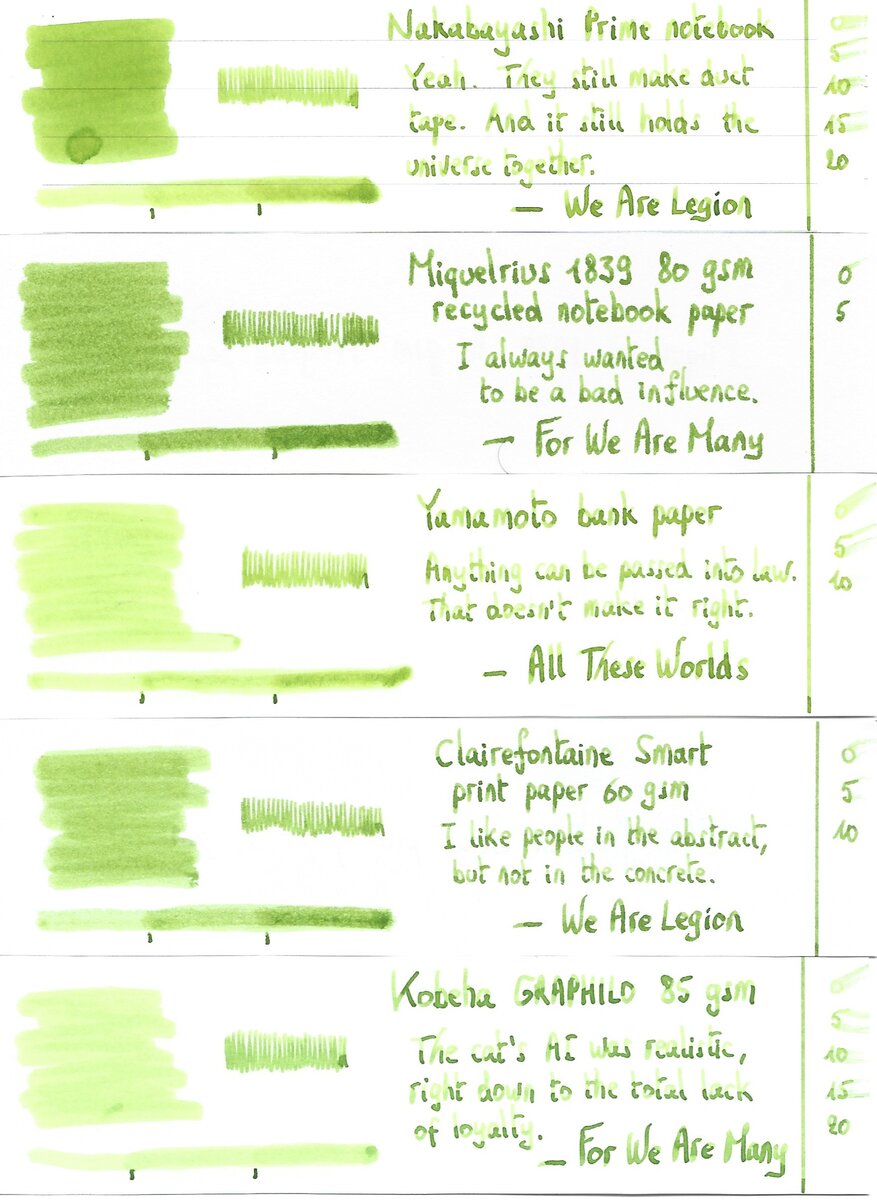 Nakabayashi Prime notebook
Yeah. They still make duct
tape. And it still holds the
universe together.
— We Are Legion
0
5
10
15
20
Miquelrius 1839 80 gsm
recycled notebook paper
I always wanted
to be a bad influence.
— For We Are Many
0
5
Yamamoto bank paper
Anything can be passed into law.
That doesn't make it right.
— All These Worlds
0
5
10
Clairefontaine Smart
print paper 60 gsm
I like people in the abstract,
but not in the concrete.
— We Are Legion
0
5
10
Kobeha GRAPHILO 85 gsm
The cat's AI was realistic,
right down to the total lack
of loyalty.
— For We Are Many
0
5
10
15
20